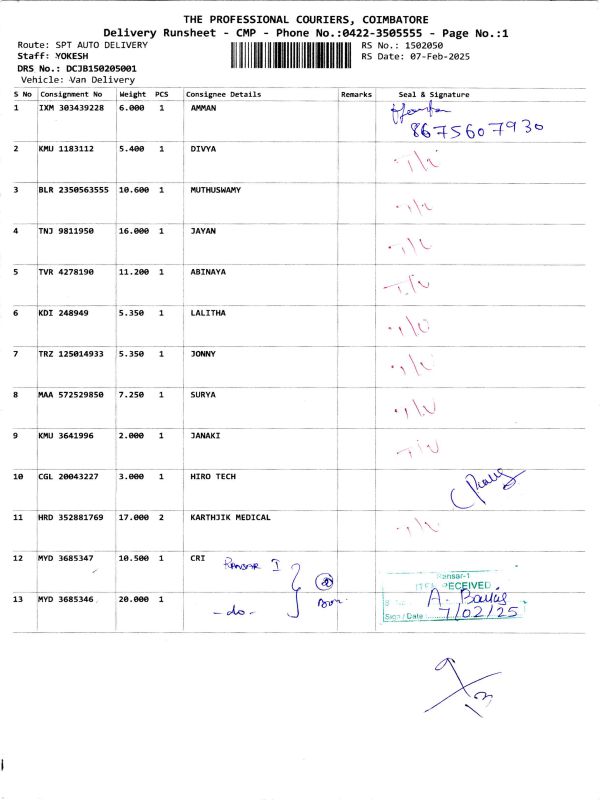 THE PROFESSIONAL COURIERS, COIMBATORE
Delivery Runsheet - CMP - Phone No.:0422-3505555 - Page No.:1
Route: SPT AUTO DELIVERY RS No.: 1502050
Staff: YOKESH RS Date: 07-Feb-2025
DRS No.: DCJB150205001
Vehicle: Van Delivery
S No Consignment No Weight PCS Consignee Details Remarks Seal & Signature
1 IXM 303439228 6.000 1 AMMAN
8675607930
2 KMU 1183112 5.400 1 DIVYA
3 BLR 2350563555 10.600 1 MUTHUSWAMY
4 TNJ 9811950 16.000 1 JAYAN
5 TVR 4278190 11.200 1 ABINAYA
6 KDI 248949 5.350 1 LALITHA
7 TRZ 125014933 5.350 1 JONNY
8 MAA 572529850 7.250 1 SURYA
9 KMU 3641996 2.000 1 JANAKI
10 CGL 20043227 3.000 1 HIRO TECH
11 HRD 352881769 17.000 2 KARTHJIK MEDICAL
12 MYD 3685347 10.500 1 CRI
Ransar-1
RECEIVED
13 MYD 3685346 20.000 1 - do - A.
Sign / Date 7/02/25
9/13